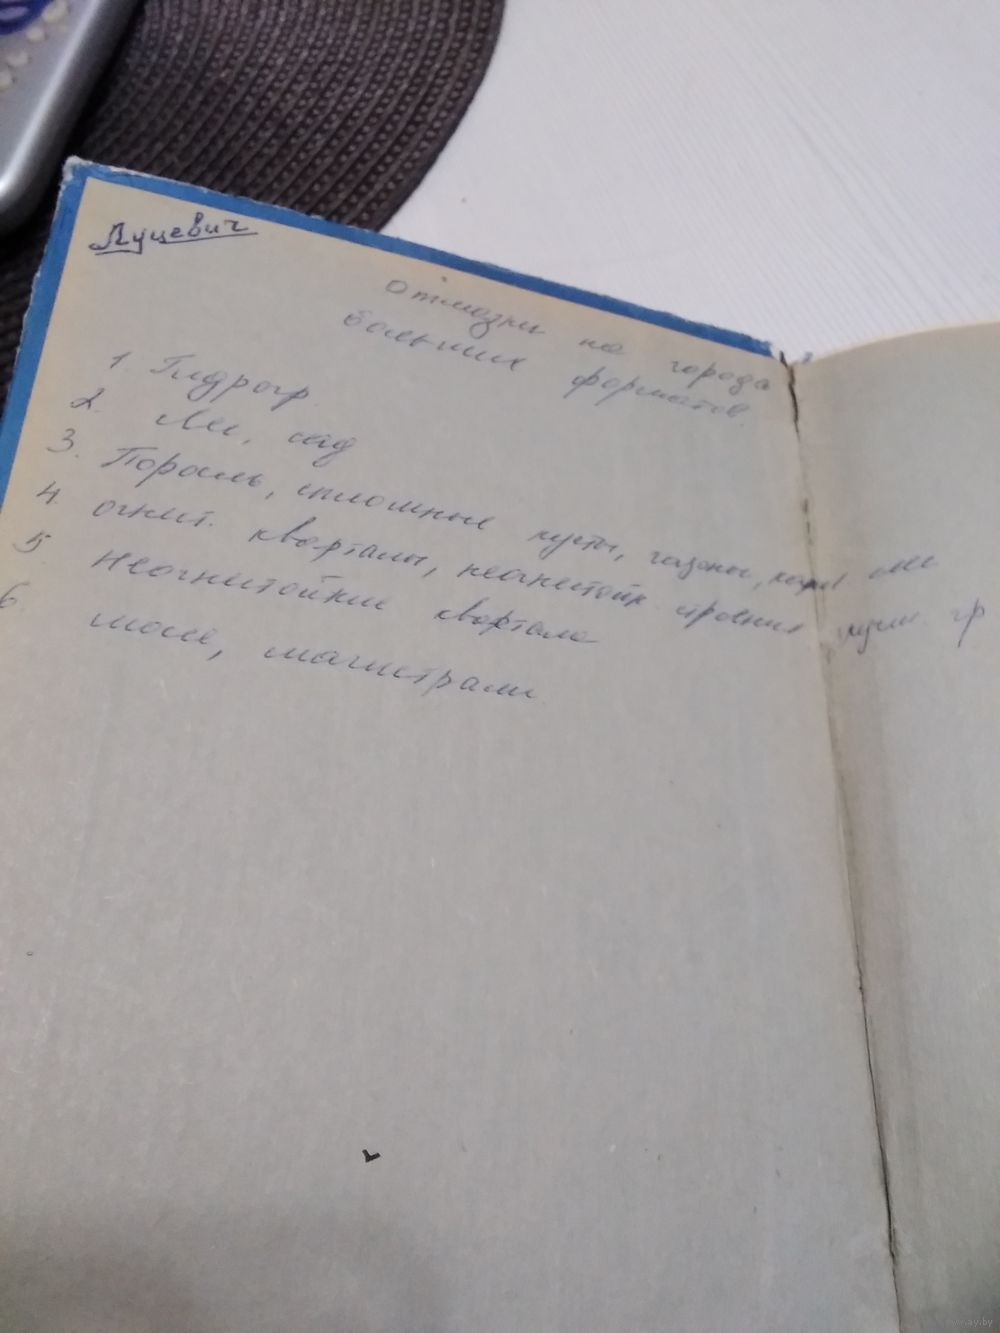 Луцевич
Отмазки на города
больших форматов
1. Гидрогр.
2. Лес, сад
3. Поросль, сплошные кусты, газоны, лес
4. огнест. кварталы, неогнестойк. строения гр
5. Неогнестойкие квартала
6. шоссе, магистрали
www.ay.by